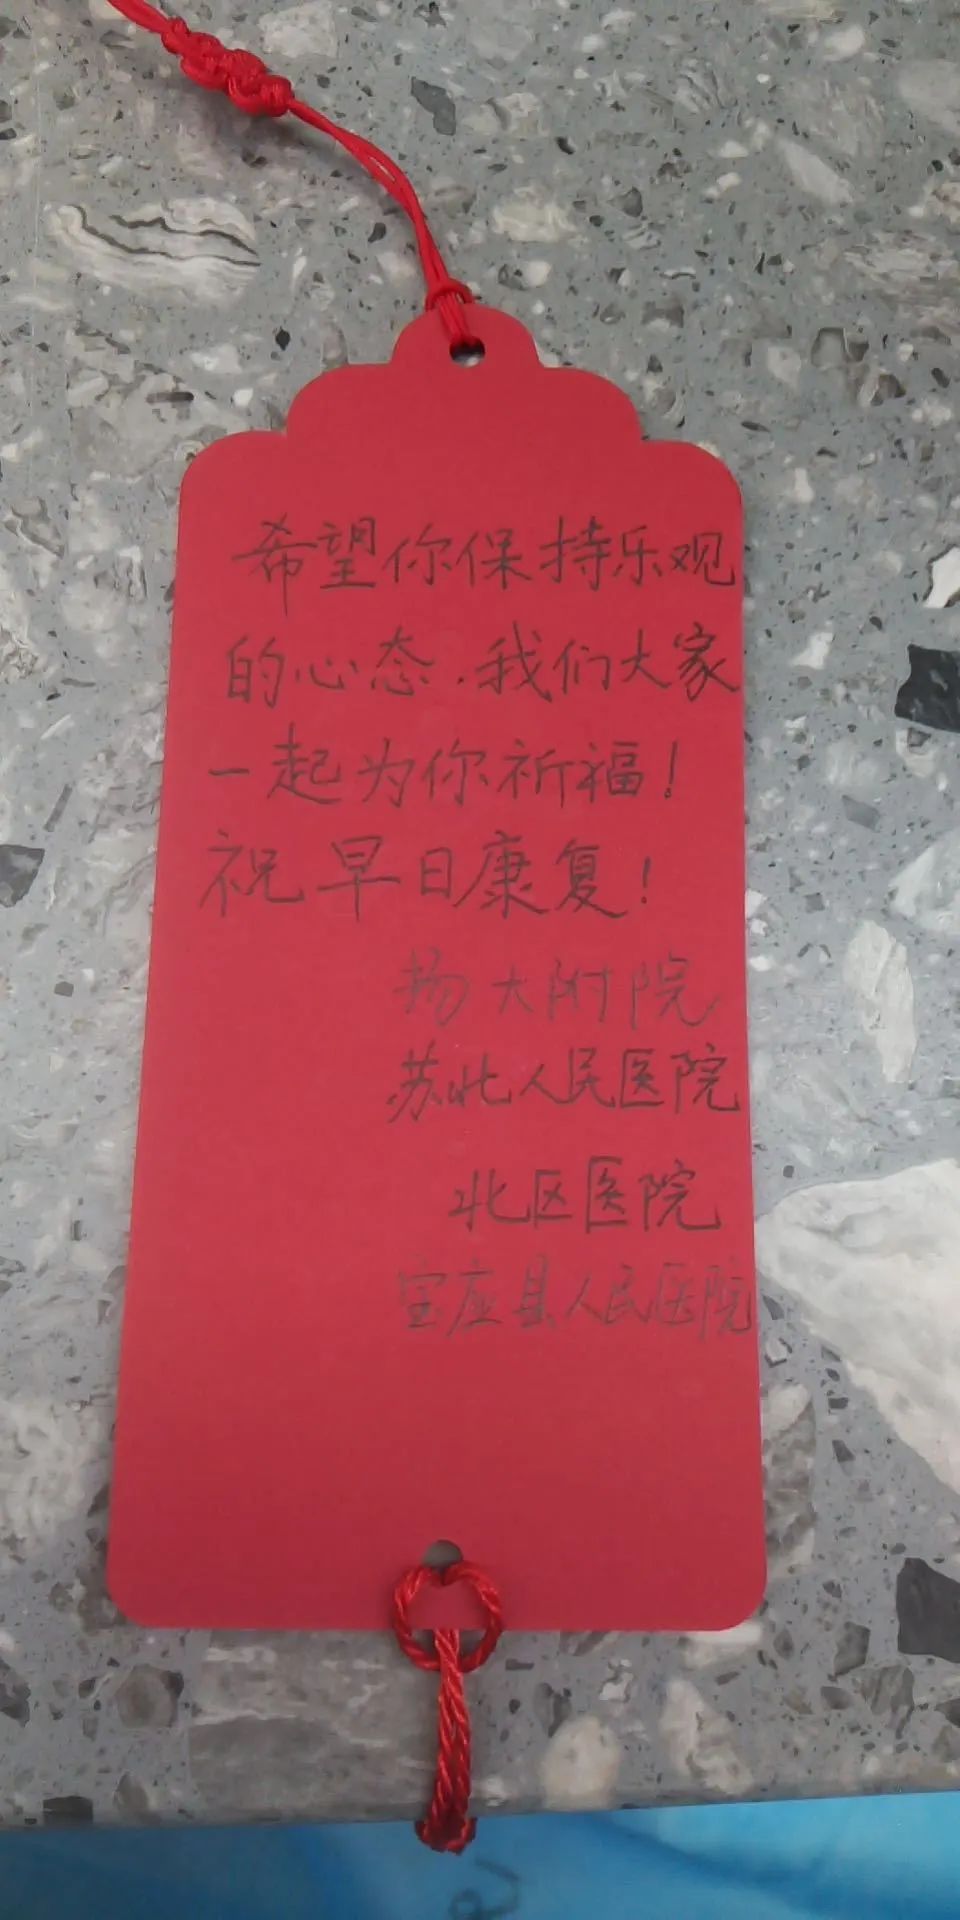 希望你保持乐观
的心态.我们大家
一起为你祈福!
祝早日康复!
扬大附院
苏北人民医院
北区医院
宝应县人民医院